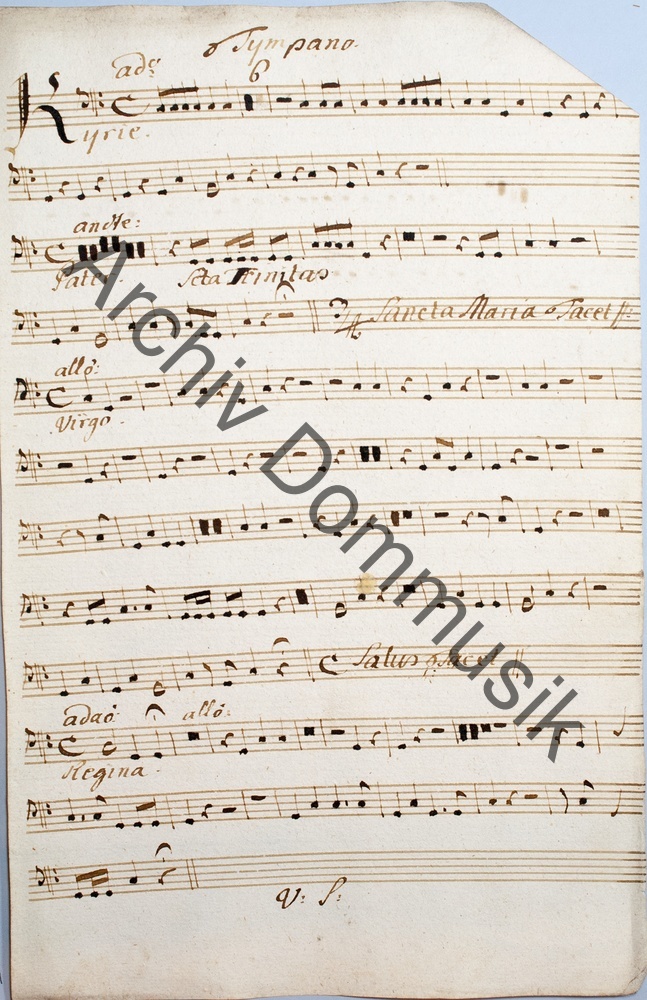 Tympano.
ado
6
Kyrie.
andte:
Pater. Scta Trinitas
Sancta Maria Tacet
allo:
Virgo.
Salus Tacet
adao: allo:
Regina.
V: S:
Archiv Dommusik